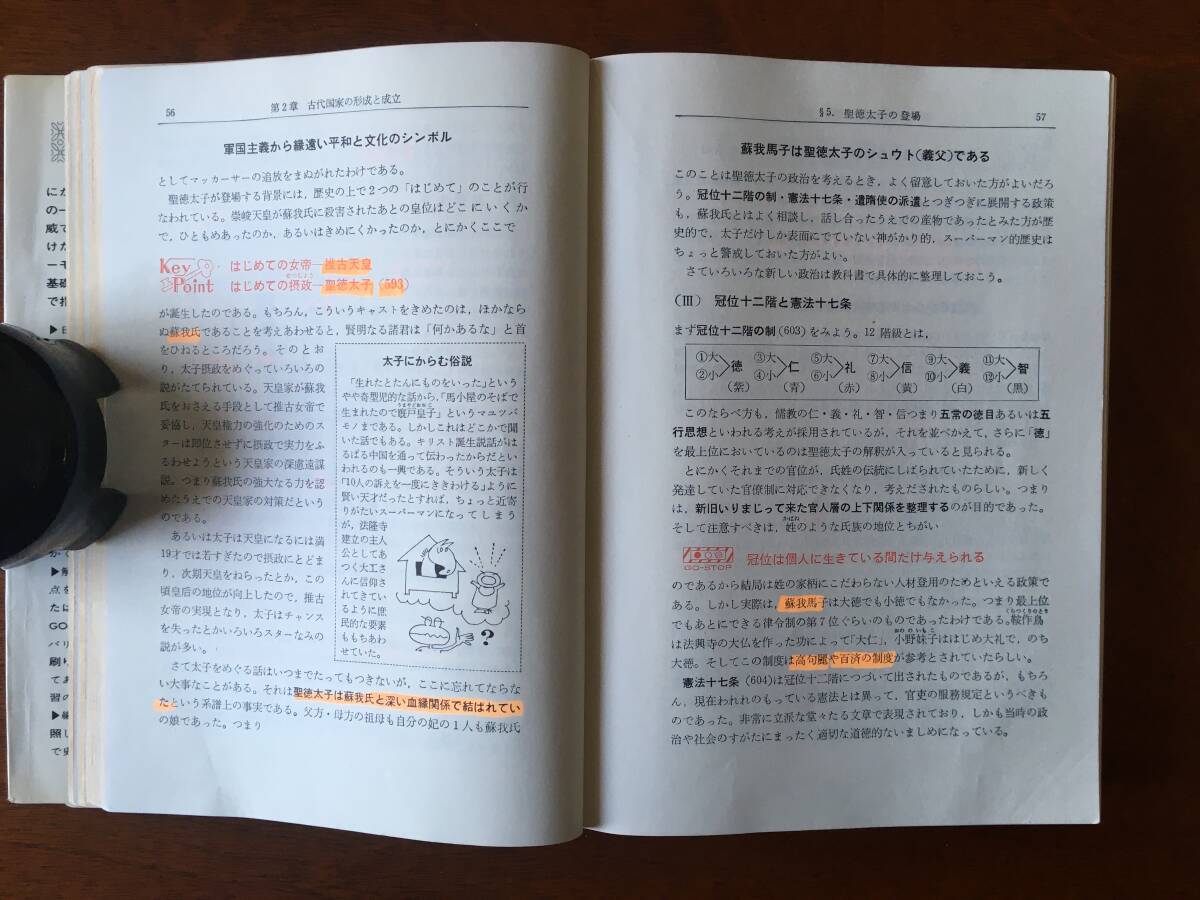 56
第2章 古代国家の形成と成立
軍国主義から縁遠い平和と文化のシンボル
としてマッカーサーの追放をまぬがれたわけである。
聖徳太子が登場する背景には，歴史の上で2つの「はじめて」のことが行
なわれている。崇峻天皇が蘇我氏に殺害されたあとの皇位はどこにいくか
で，ひともめあったのか，あるいはきめにくかったのか，とにかくここで
Key Point
はじめての女帝―推古天皇
せつしよう
はじめての摂政―聖徳太子（593）
が誕生したのである。もちろん，こういうキャストをきめたのは，ほかなら
ぬ蘇我氏であることを考えあわせると，賢明なる諸君は「何かあるな」と首
をひねるところだろう。そのとお
り，太子摂政をめぐっていろいろの
説がたてられている。天皇家が蘇我
氏をおさえる手段として推古女帝で
妥協し，天皇権力の強化のためのス
ターは即位させずに摂政で実力をふ
るわせようという天皇家の深慮遠謀
説。つまり蘇我氏の強大なる力を認
めたうえでの天皇家の対策だという
のである。
あるいは太子は天皇になるには満
19才では若すぎたので摂政にとどま
り，次期天皇をねらったとか，この
頃皇后の地位が向上したので，推古
女帝の実現となり，太子はチャンス
を失ったとかいろいろスターなみの
説が多い。
太子にからむ俗説
「生れたとたんにものをいった」という
やや奇型児的な話から，「馬小屋のそばで
うまやどおおじ
生まれたので厩戸皇子」というマユツバ
モノまである。しかしこれはどこかで聞
いた話でもある。キリスト誕生説話がは
るばる中国を通って伝わったからだとい
われるのも一興である。そういう太子は
「10人の訴えを一度にききわける」ように
賢い天才だったとすれば，ちょっと近寄
りがたいスーパーマンになってしまう
が，法隆寺
建立の主人
公としてあ
つく大工さ
んに信仰さ
れてきてい
るように庶
民的な要素
ももちあわ
せていた。
?
さて太子をめぐる話はいつまでたってもつきないが，ここに忘れてならな
い大事なことがある。それは聖徳太子は蘇我氏と深い血縁関係で結ばれてい
たという系譜上の事実である。父方・母方の祖母も自分の妃の1人も蘇我氏
の娘であった。つまり
§5. 聖徳太子の登場
57
蘇我馬子は聖徳太子のシュウト（義父）である
このことは聖徳太子の政治を考えるとき，よく留意しておいた方がよいだろ
う。冠位十二階の制・憲法十七条・遣隋使の派遣とつぎつぎに展開する政策
も，蘇我氏とはよく相談し，話し合ったうえでの産物であったとみた方が歴
史的で，太子だけしか表面にでていない神がかり的，スーパーマン的歴史は
ちょっと警戒しておいた方がよい。
さていろいろな新しい政治は教科書で具体的に整理しておこう。
（Ⅲ） 冠位十二階と憲法十七条
まず冠位十二階の制（603）をみよう。12階級とは，
①大 ②小 徳（紫） ③大 ④小 仁（青） ⑤大 ⑥小 礼（赤） ⑦大 ⑧小 信（黄） ⑨大 ⑩小 義（白） ⑪大 ⑫小 智（黒）
このならべ方も，儒教の仁・義・礼・智・信つまり五常の徳目あるいは五
行思想といわれる考えが採用されているが，それを並べかえて，さらに「徳」
を最上位においているのは聖徳太子の解釈が入っていると見られる。
とにかくそれまでの官位が，氏姓の伝統にしばられていたために，新しく
発達していた官僚制に対応できなくなり，考えだされたものらしい。つまり
は，新旧いりまじって来た官人層の上下関係を整理するのが目的であった。
かばね
そして注意すべきは，姓のような氏族の地位とちがい
GO-STOP
冠位は個人に生きている間だけ与えられる
のであるから結局は姓の家柄にこだわらない人材登用のためといえる政策で
ある。しかし実際は，蘇我馬子は大徳でも小徳でもなかった。つまり最上位
くらつくりのとり
でもあとにできる律令制の第7位ぐらいのものであったわけである。鞍作鳥
おののいもこ
は法興寺の大仏を作った功によって「大仁」，小野妹子ははじめ大礼で，のち
大徳。そしてこの制度は高句麗や百済の制度が参考とされていたらしい。
憲法十七条（604）は冠位十二階につづいて出されたものであるが，もちろ
ん，現在われわれのもっている憲法とは異って，官吏の服務規定というべきも
のであった。非常に立派な堂々たる文章で表現されており，しかも当時の政
治や社会のすがたにまったく適切な道徳的ないましめになっている。